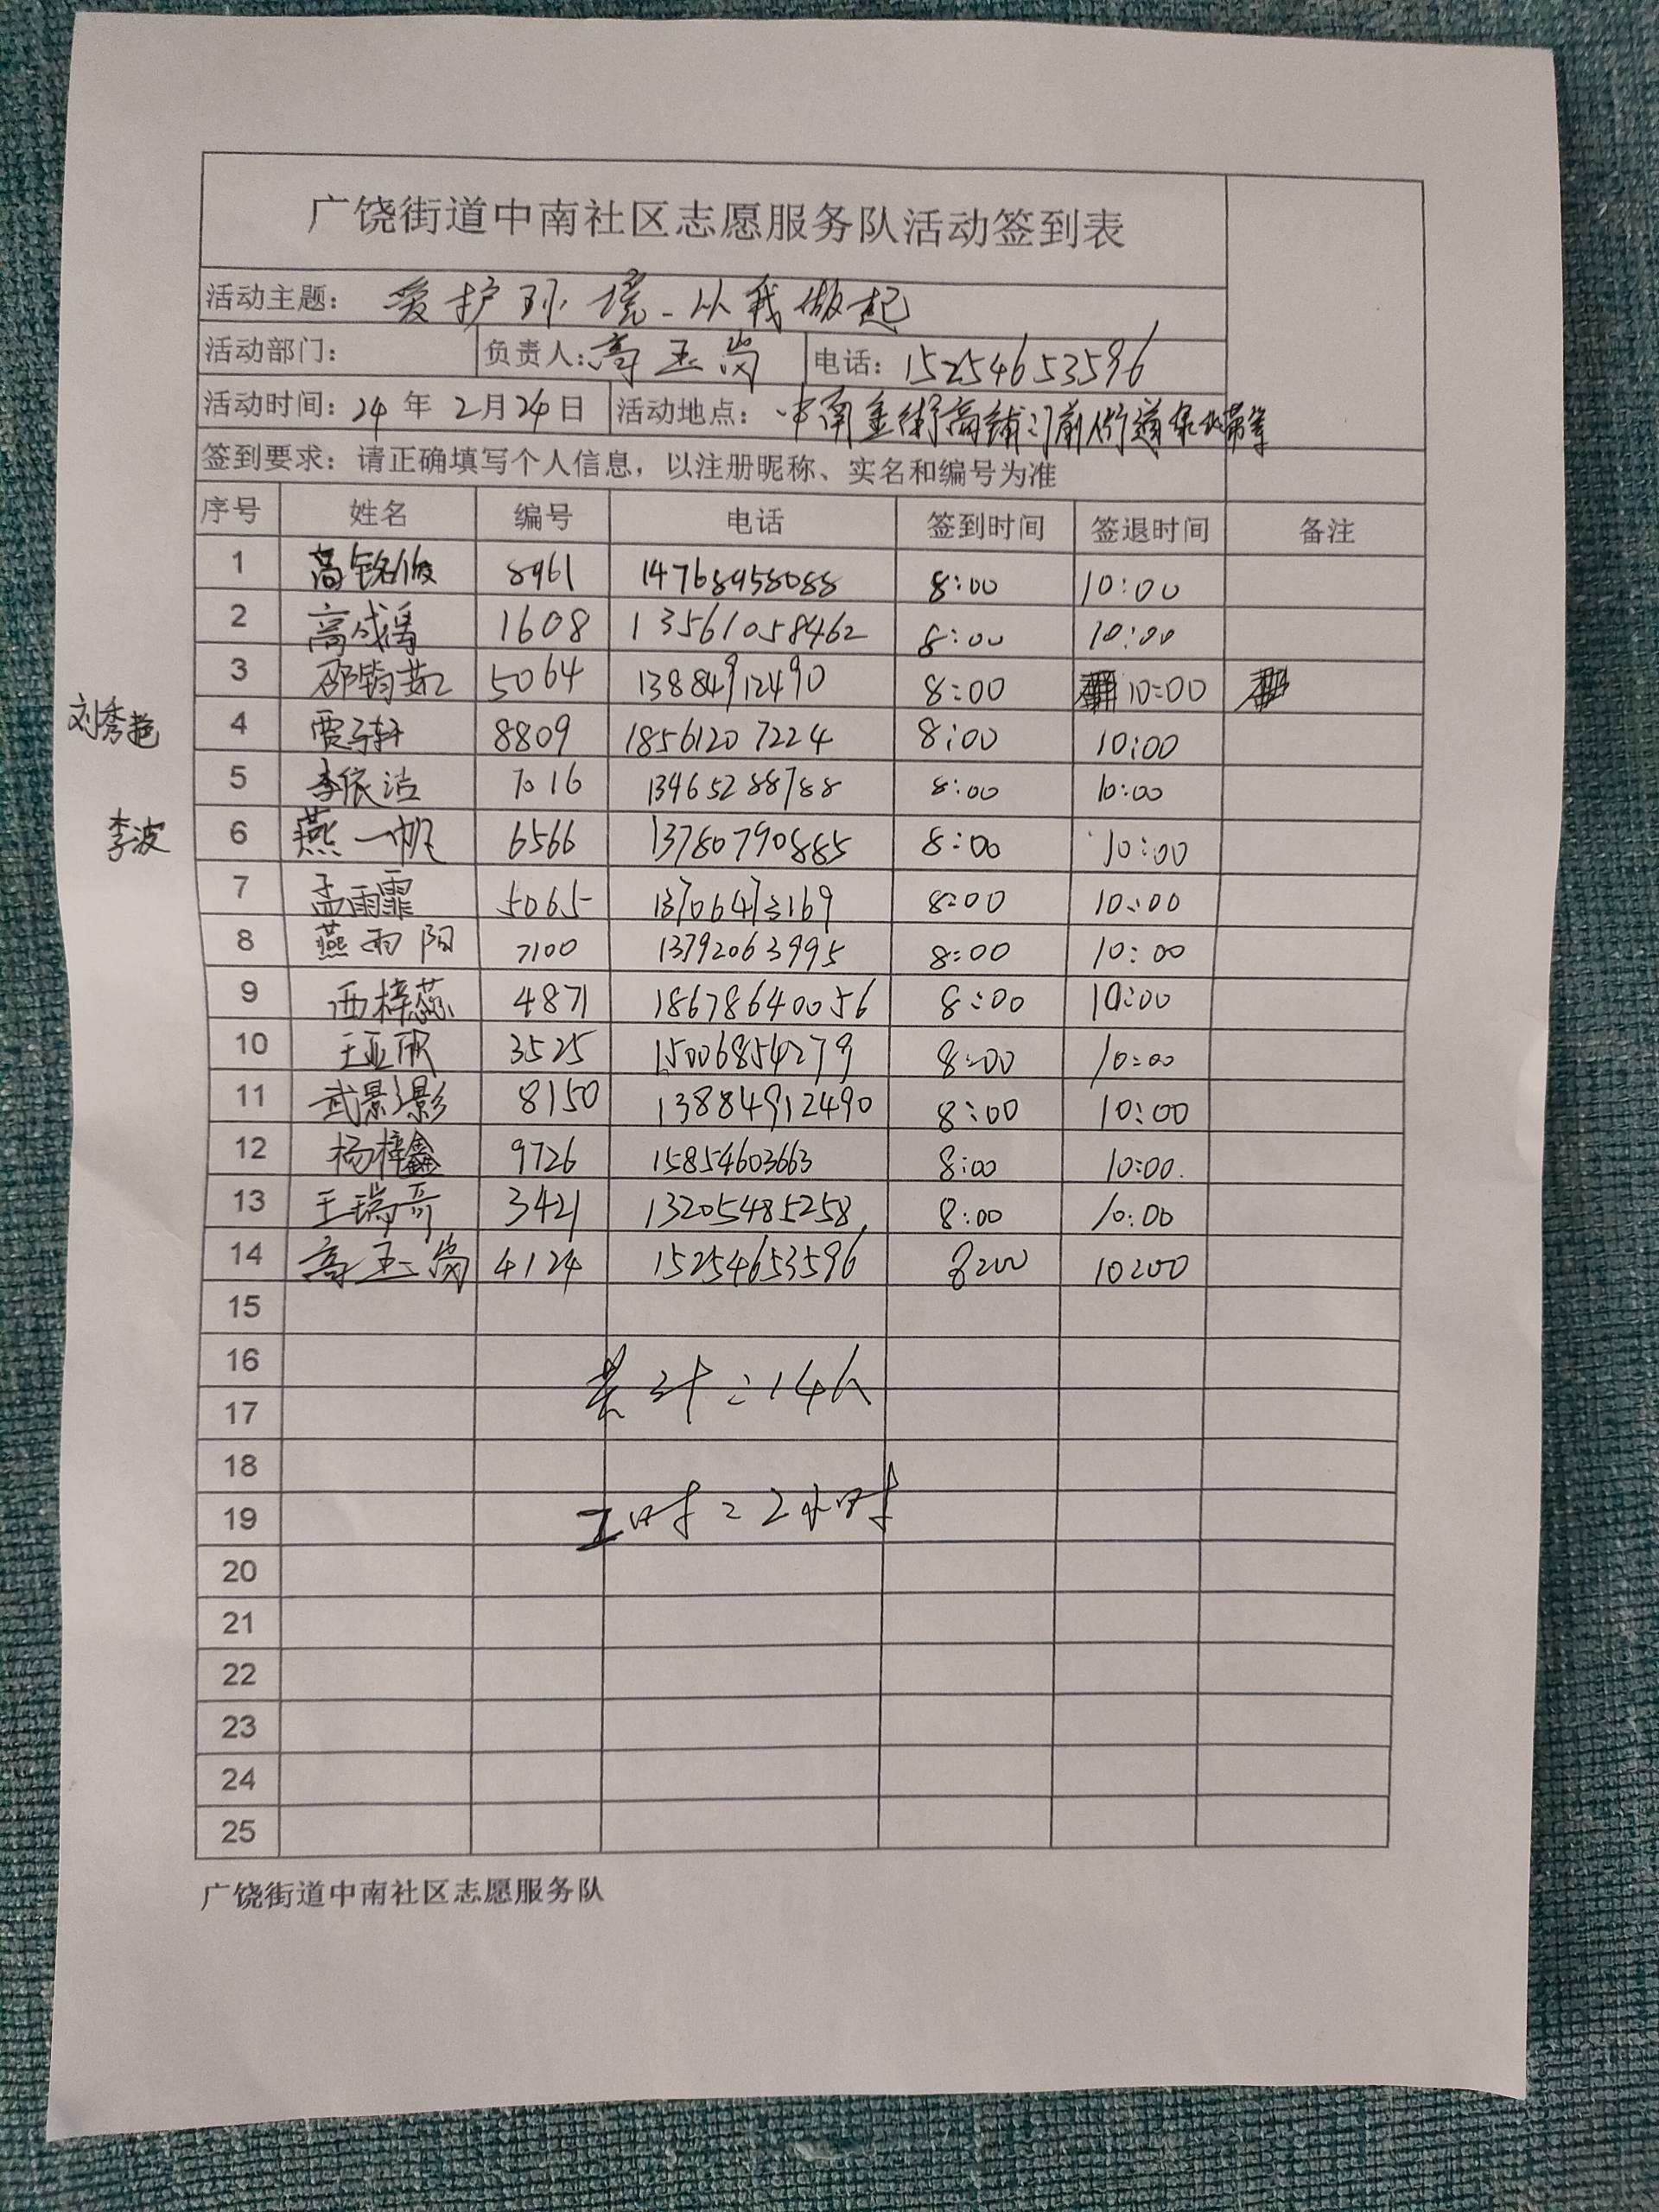 广饶街道中南社区志愿服务队活动签到表
活动主题： 爱护环境-从我做起
活动部门： 负责人：高玉岗 电话：15254653596
活动时间：24年2月24日 活动地点：中南金街商铺门前街道绿化带等
签到要求：请正确填写个人信息，以注册昵称、实名和编号为准
序号 姓名 编号 电话 签到时间 签退时间 备注
1 高铭俊 8961 14768958088 8:00 10:00
2 高成禹 1608 13561058462 8:00 10:00
3 邵钧茹 5064 13884912490 8:00 10:00
刘秀艳
4 贾子轩 8809 18561207224 8:00 10:00
5 李依洁 7016 13465288788 8:00 10:00
李波
6 燕一帆 6566 13780790885 8:00 10:00
7 孟雨霏 5065 13706473169 8:00 10:00
8 燕雨阳 7100 13792063995 8:00 10:00
9 西梓蕊 4871 18678640056 8:00 10:00
10 王亚欣 3525 15006854279 8:00 10:00
11 武景影 8150 13884912490 8:00 10:00
12 杨梓鑫 9726 15854603663 8:00 10:00.
13 王瑞哥 3421 13205485258 8:00 10:00
14 高玉岗 4124 15254653596 8:00 10:00
15
16
共计：14人
17
18
工时：2小时
19
20
21
22
23
24
25
广饶街道中南社区志愿服务队